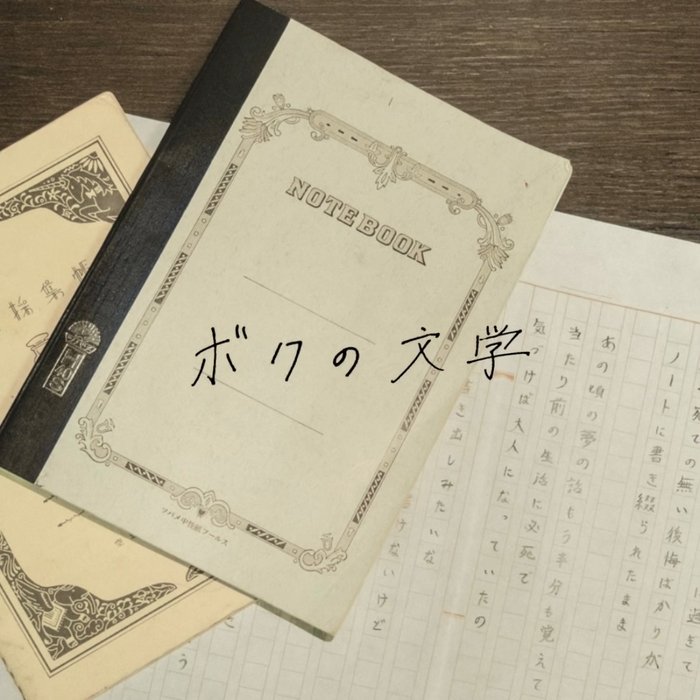 NOTEBOOK
ボクの文学
ツバメ中性紙フールス
に過ぎて
宛ての無い後悔ばかりが
ノートに書き綴られたまま
あの頃の夢の話もう半分も覚えて
当たり前の生活に必死で
気づけば大人になっていたの
き出しみたいな
けないけど
う